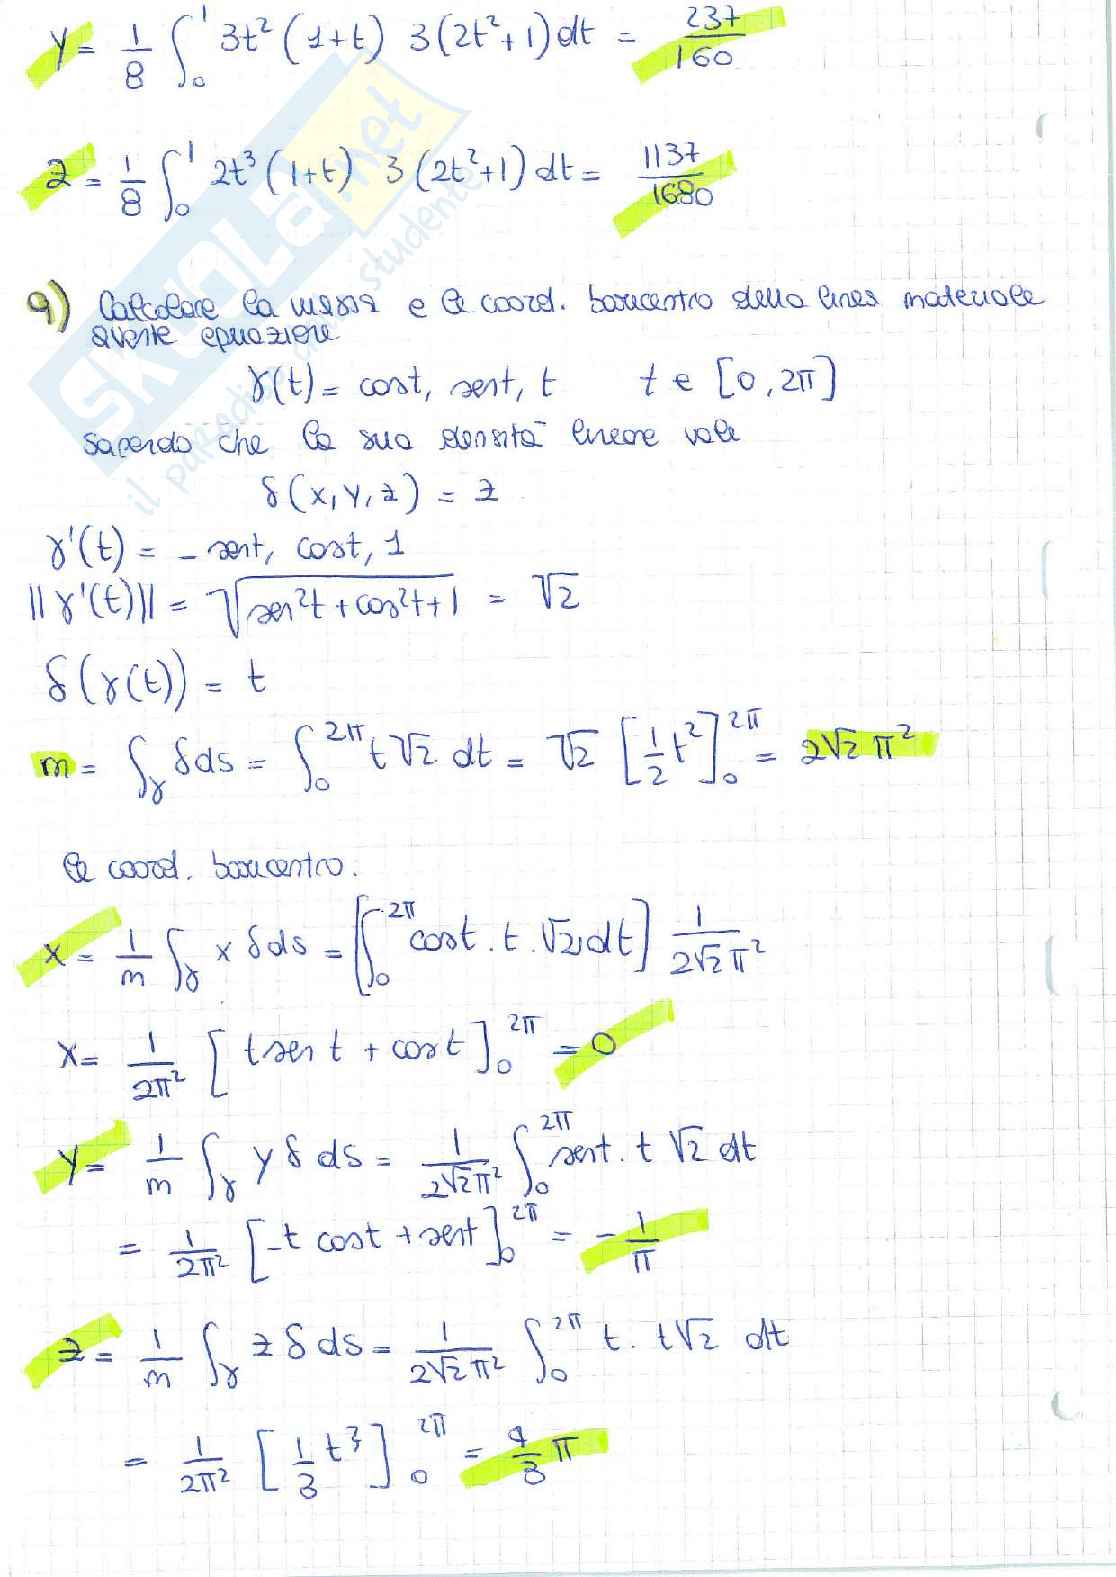 y = 1/8 ∫₀¹ 3t² (1+t) 3(2t²+1) dt = 237/160
z = 1/8 ∫₀¹ 2t³ (1+t) 3(2t²+1) dt = 1137/1680
9) Calcolare la massa e le coord. baricentro della linea materiale
avente equazione
γ(t) = cost, sent, t t e [0, 2π]
sapendo che la sua densità lineare vale
δ(x, y, z) = z
γ'(t) = - sent, cost, 1
||γ'(t)|| = √(sen²t + cos²t + 1) = √2
δ(γ(t)) = t
m = ∫γ δ ds = ∫₀^2π t √2 dt = √2 [1/2 t²]₀^2π = 2√2 π²
le coord. baricentro.
x = 1/m ∫γ x δ ds = [∫₀^2π cost . t . √2 dt] 1/(2√2 π²)
x = 1/(2π²) [t sen t + cost]₀^2π = 0
y = 1/m ∫γ y δ ds = 1/(2√2 π²) ∫₀^2π sent . t √2 dt
= 1/(2π²) [-t cost + sent]₀^2π = - 1/π
z = 1/m ∫γ z δ ds = 1/(2√2 π²) ∫₀^2π t . t √2 dt
= 1/(2π²) [1/3 t³]₀^2π = 4/3 π
SKUOLA.net